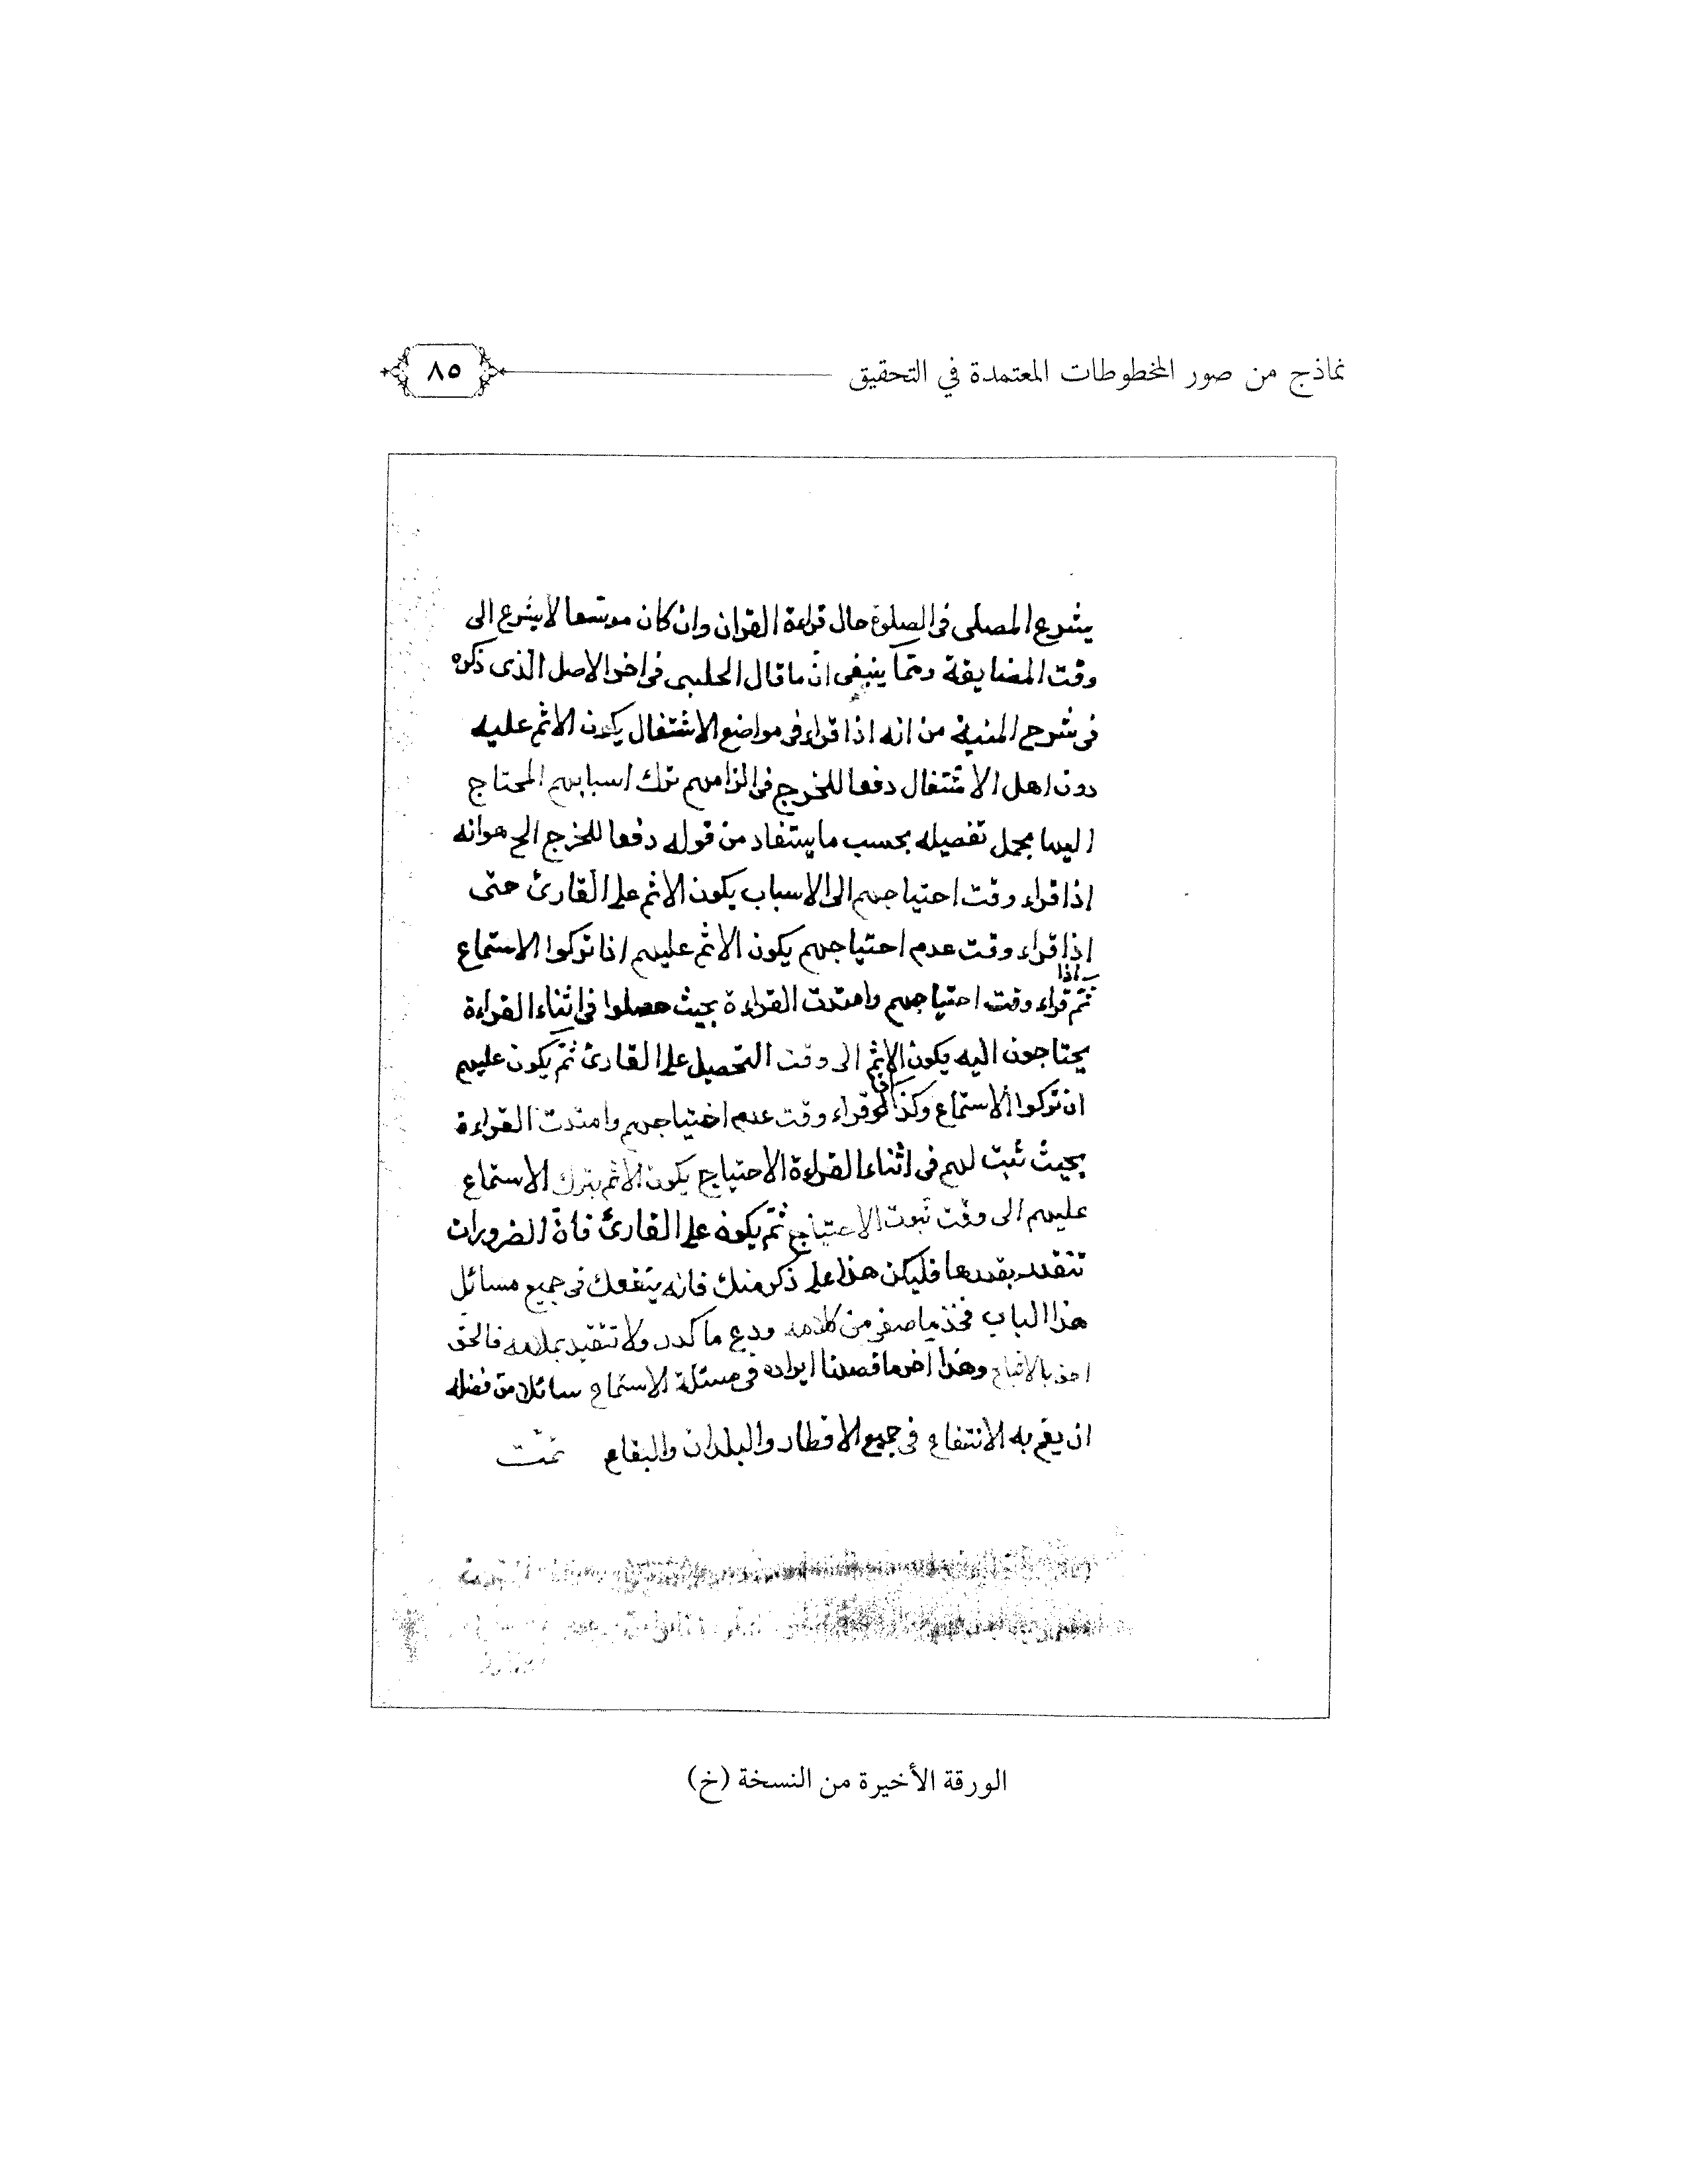 نماذج من صور المخطوطات المعتمدة في التحقيق
٨٥
يشرع المصلى فى الصلوة حال قراءة القران وان كان موسّعا لا يشرع الى
وقت المضايقة وممّا ينبغى انّ ما قال الحلبى فى اخر الاصل الّذى ذكره
فى شرح المنية من انه اذا قراء فى مواضع الاشتغال يكون الاثم عليه
دون اهل الاشتغال دفعا للحرج فى الزامهم ترك اسبابهم المحتاج
اليها مجمل تفصيله بحسب ما يستفاد من قوله دفعا للحرج الخ هو انه
اذا قراء وقت احتياجهم الى الاسباب يكون الاثم على القارئ حتى
اذا قراء وقت عدم احتياجهم يكون الاثم عليهم اذا تركوا الاستماع
اذا
ثمّ قراء وقت احتياجهم وامتدت القراءة بحيث حصلوا فى اثناء القراءة
يحتاجون اليه يكون الاثم الى وقت التحصيل على القارئ ثمّ يكون عليهم
ان تركوا الاستماع وكذا لو قراء وقت عدم احتياجهم وامتدت القراءة
بحيث ثبت لهم فى اثناء القراءة الاحتياج يكون الاثم بترك الاستماع
عليهم الى وقت ثبوت الاحتياج ثمّ يكون على القارئ فانّ الضرورات
تتقدر بقدرها فليكن هذا على ذكر منك فانه ينفعك فى جميع مسائل
هذا الباب فخذ ما صفى من كلامه ودع ما كدر ولا تتقيد بملامه فالحق
احق بالاتباع وهذا اخر ما قصدنا ايراده فى مسئلة الاستماع سائلا من فضله
ان يعمّ به الانتفاع فى جميع الاقطار والبلدان والبقاع تمّت
الورقة الأخيرة من النسخة (خ)